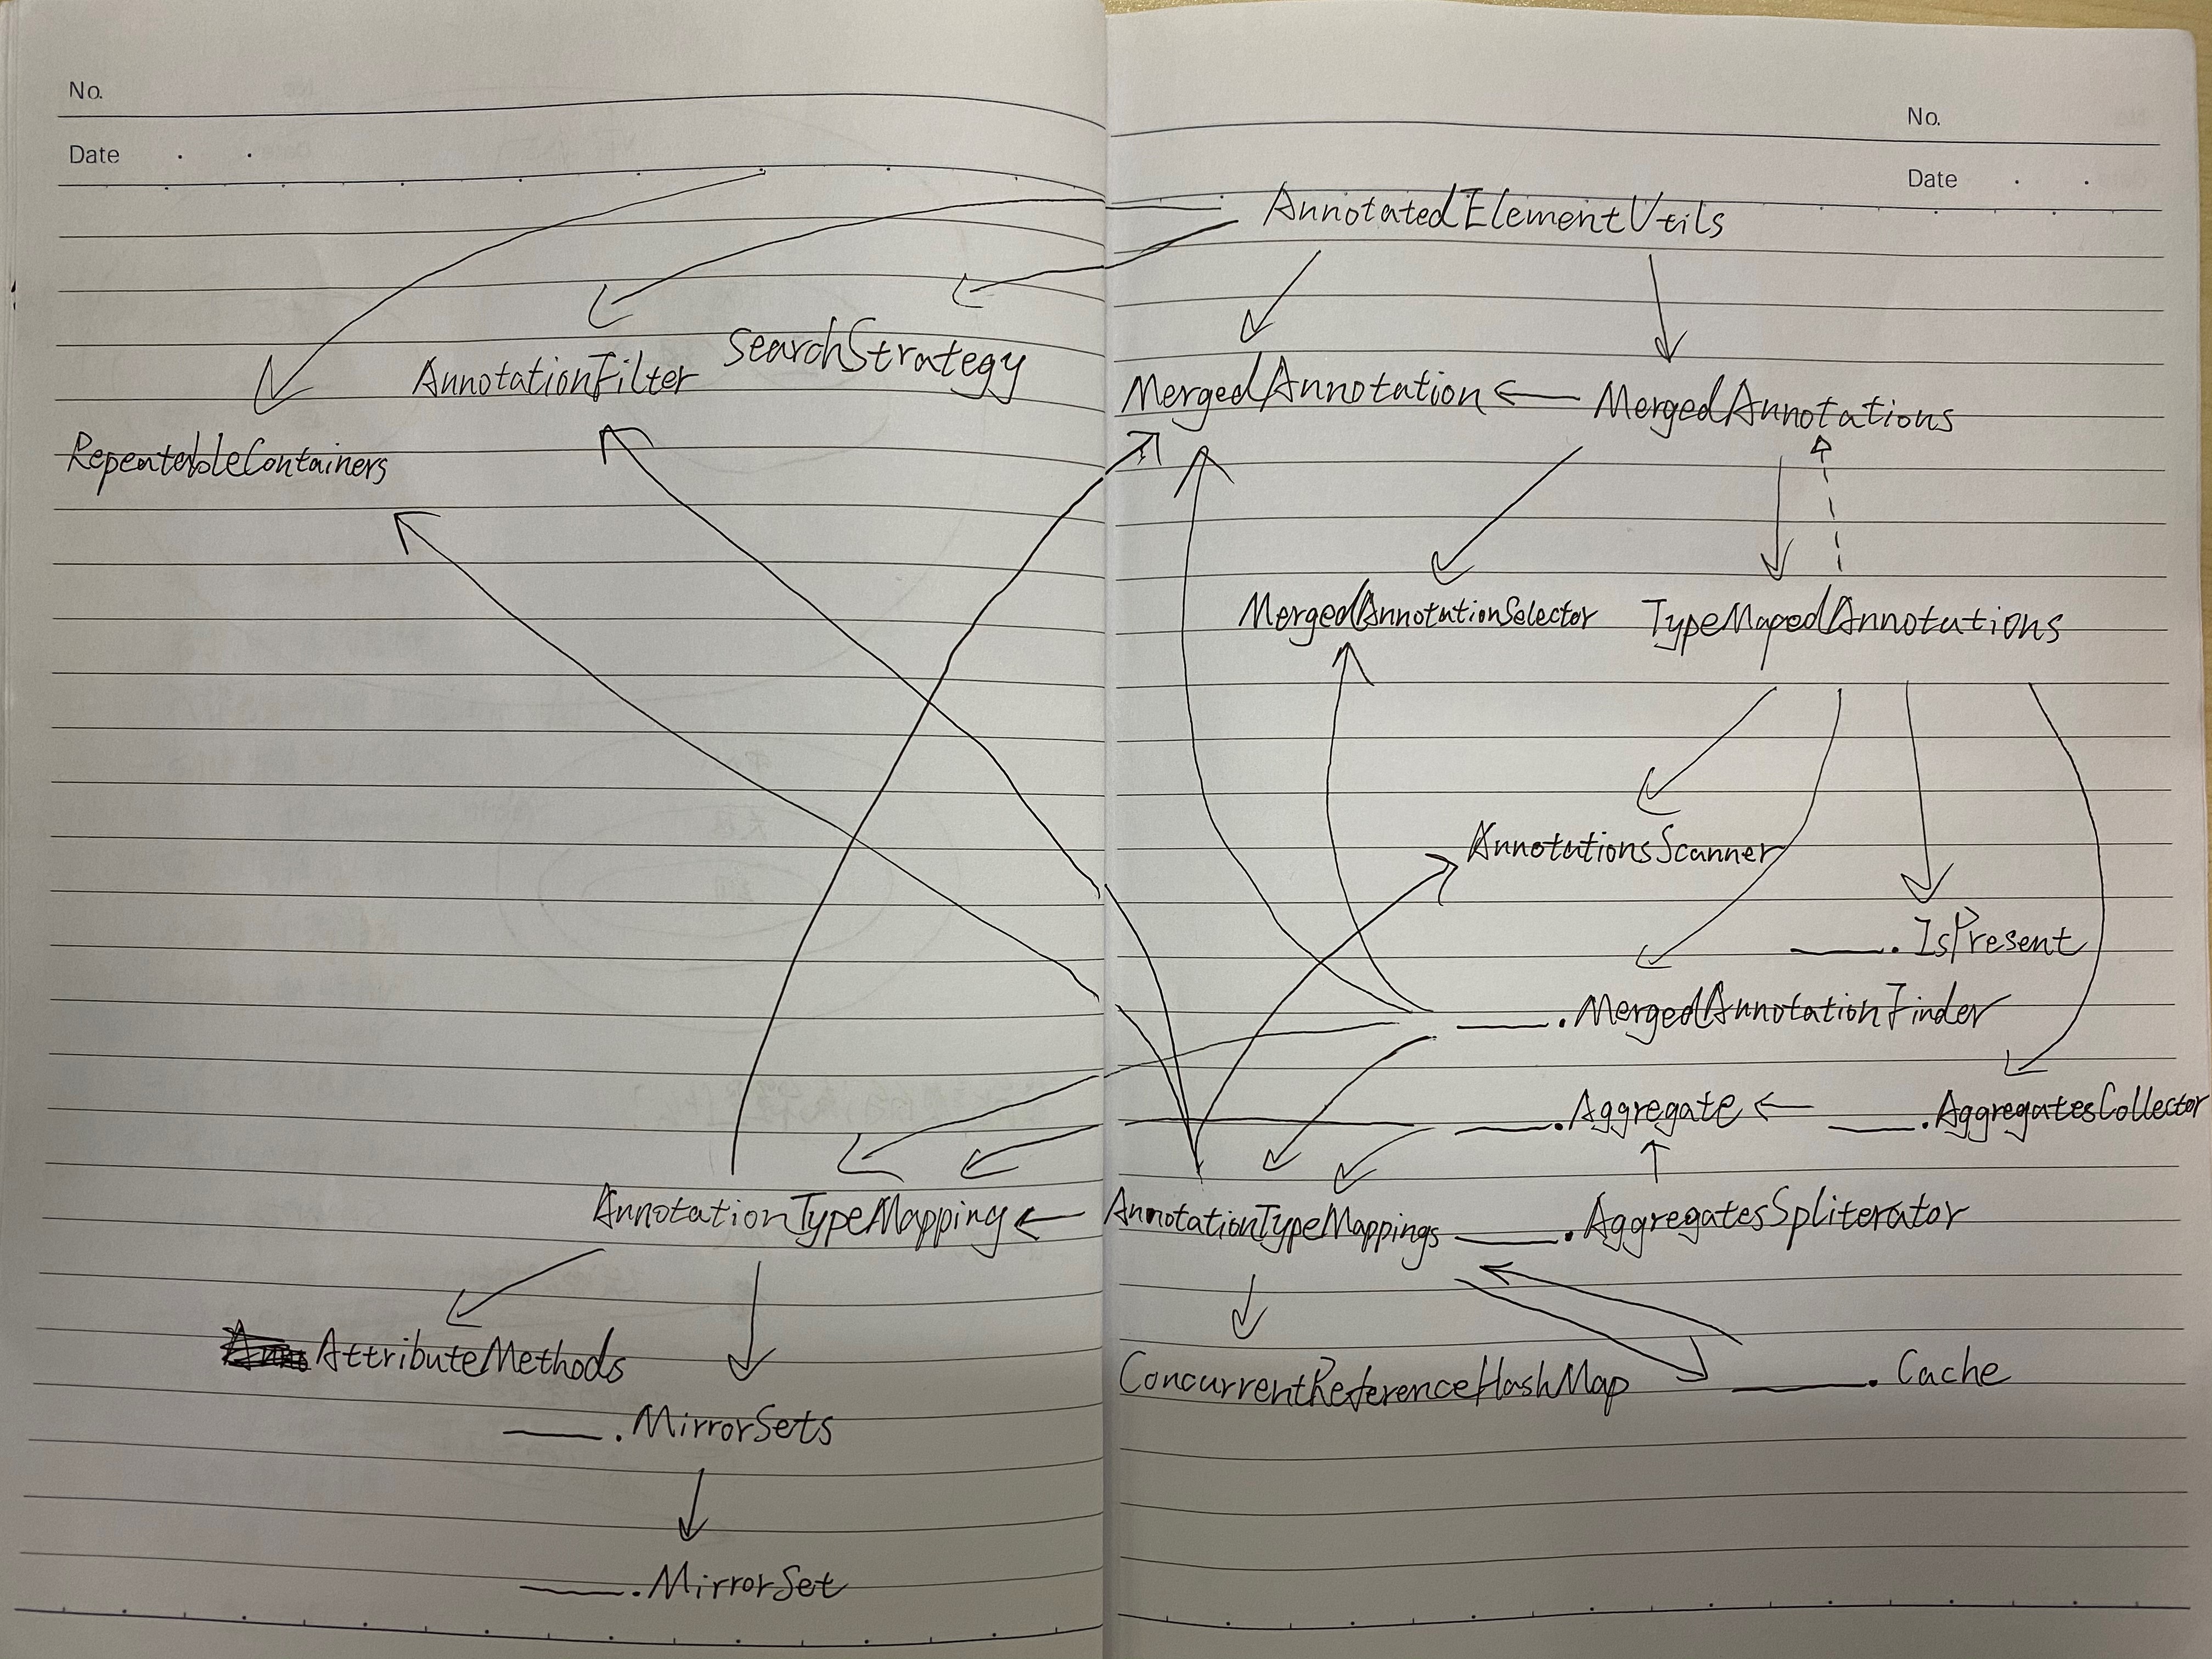 No.
Date
SearchStrategy
AnnotationFilter
RepeatableContainers
AnnotationTypeMapping
AttributeMethods
.MirrorSets
.MirrorSet
No.
Date
AnnotatedElementUtils
MergedAnnotation
MergedAnnotations
MergedAnnotationSelector
TypeMapedAnnotations
AnnotationsScanner
.IsPresent
.MergedAnnotationFinder
.Aggregate
.AggregatesCollector
AnnotationTypeMappings
.AggregatesSpliterator
ConcurrentReferenceHashMap
.Cache